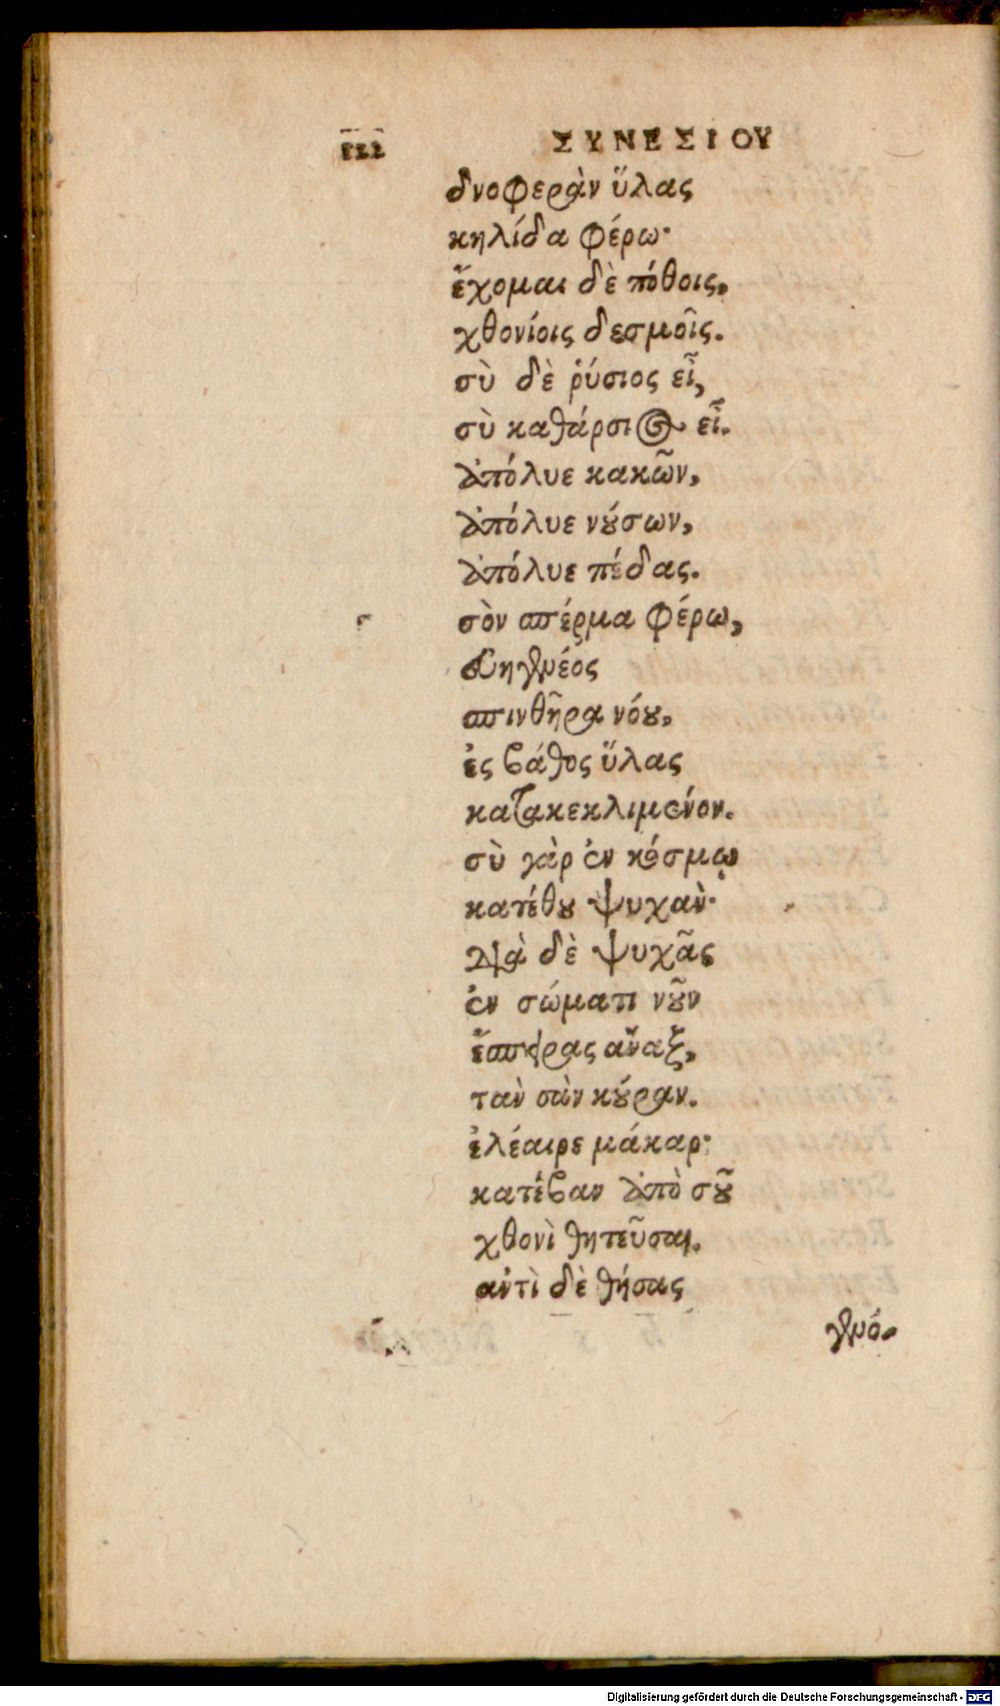 122 ΣΥΝΕΣΙΟΥ
δνοφερὰν ὕλας
κηλίδα φέρω·
ἔχομαι δὲ πόθοις,
χθονίοις δεσμοῖς.
σὺ δὲ ῥύσιος εἶ,
σὺ καθάρσιος εἶ.
ἀπόλυε κακῶν,
ἀπόλυε νούσων,
ἀπόλυε πέδας.
σὸν σπέρμα φέρω,
εὐηγενέος
σπινθῆρα νόου,
ἐς βάθος ὕλας
κατακεκλιμένον.
σὺ γὰρ ἐν κόσμῳ
κατέθου ψυχὰν·
διὰ δὲ ψυχᾶς
ἐν σώματι νοῦν
ἔσπειρας ἄναξ,
τὰν σὰν κούραν.
ἐλέαιρε μάκαρ·
κατέβαν ἀπὸ σοῦ
χθονὶ θητεῦσαι.
ἀντὶ δὲ θήσας
γενό-
Digitalisierung gefördert durch die Deutsche Forschungsgemeinschaft - DFG